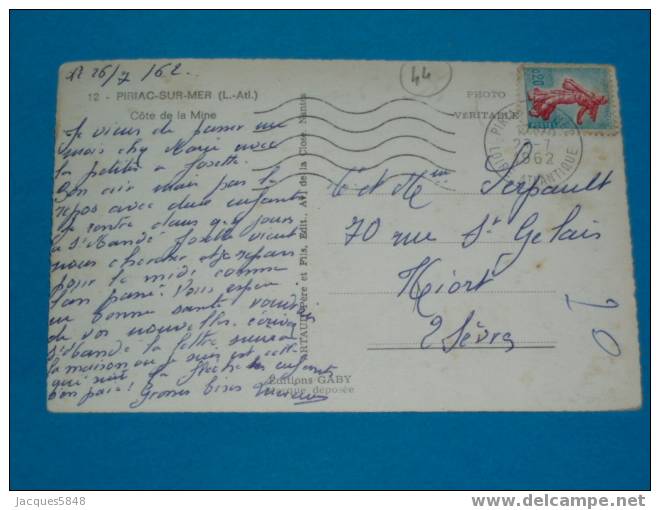 le 26/7/62
44
12 - PIRIAC-SUR-MER (L.-Atl.)
Côte de la Mine
PHOTO
VERITABLE
0,20
PIRIAC
26-7
1962
LOIRE ATLANTIQUE
Je viens de passer un
mois chez Marie avec
la petite à Josette.
Bon air mais pas le
repos avec deux enfants
je rentre dans qq jours
à St Mandé Josette vient
nous chercher et je repars
pour le midi comme
l'an passé. Vous espère
en bonne santé
de vos nouvelles.
St Mandé la lettre suivra
la maison où je suis est celle
qui suit la flèche les enfants
bon paix! Grosses bises
ARTAUD Père et Fils, Edit., Av. de la Close, Nantes
Editions GABY
Marque déposée
Mr et Mme Serpault
70 rue St Gelais
Niort
2 Sèvres
20
Jacques5848
www.delcampe.net